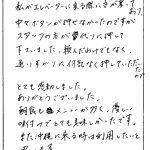 私がエレベーターに乗る際に手が塞っており
中々ボタンが押せなかったのですが
スタッフの方が替わりに押して
下さいました。頼んだわけでもなく
通りすがりに行先を押していただいたので
とても感動しました。
ありがとうございました。
朝食もメニューが多く、優しい
味付けでとても美味しかったです。
また沖縄に来る時は利用したいと